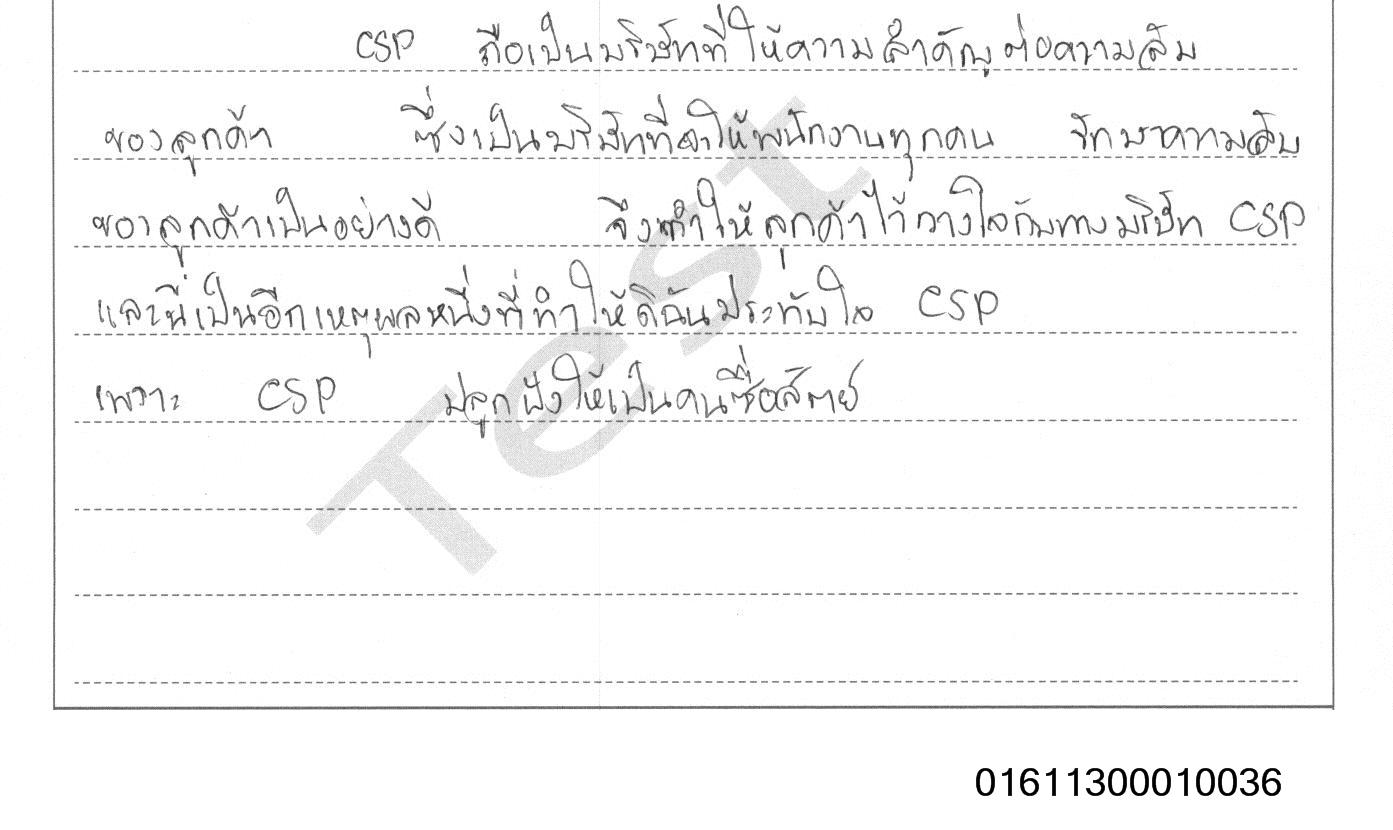 CSP ถือเป็นบริษัทที่ให้ความสำคัญต่อความลับ
ของลูกค้า ซึ่งเป็นบริษัทที่จะให้พนักงานทุกคน รักษาความลับ
ของลูกค้าเป็นอย่างดี จึงทำให้ลูกค้าไว้วางใจกับทางบริษัท CSP
และนี่เป็นอีกเหตุผลหนึ่งที่ทำให้ดิฉันประทับใจ CSP
เพราะ CSP ปลูกฝังให้เป็นคนซื่อสัตย์
Test
01611300010036